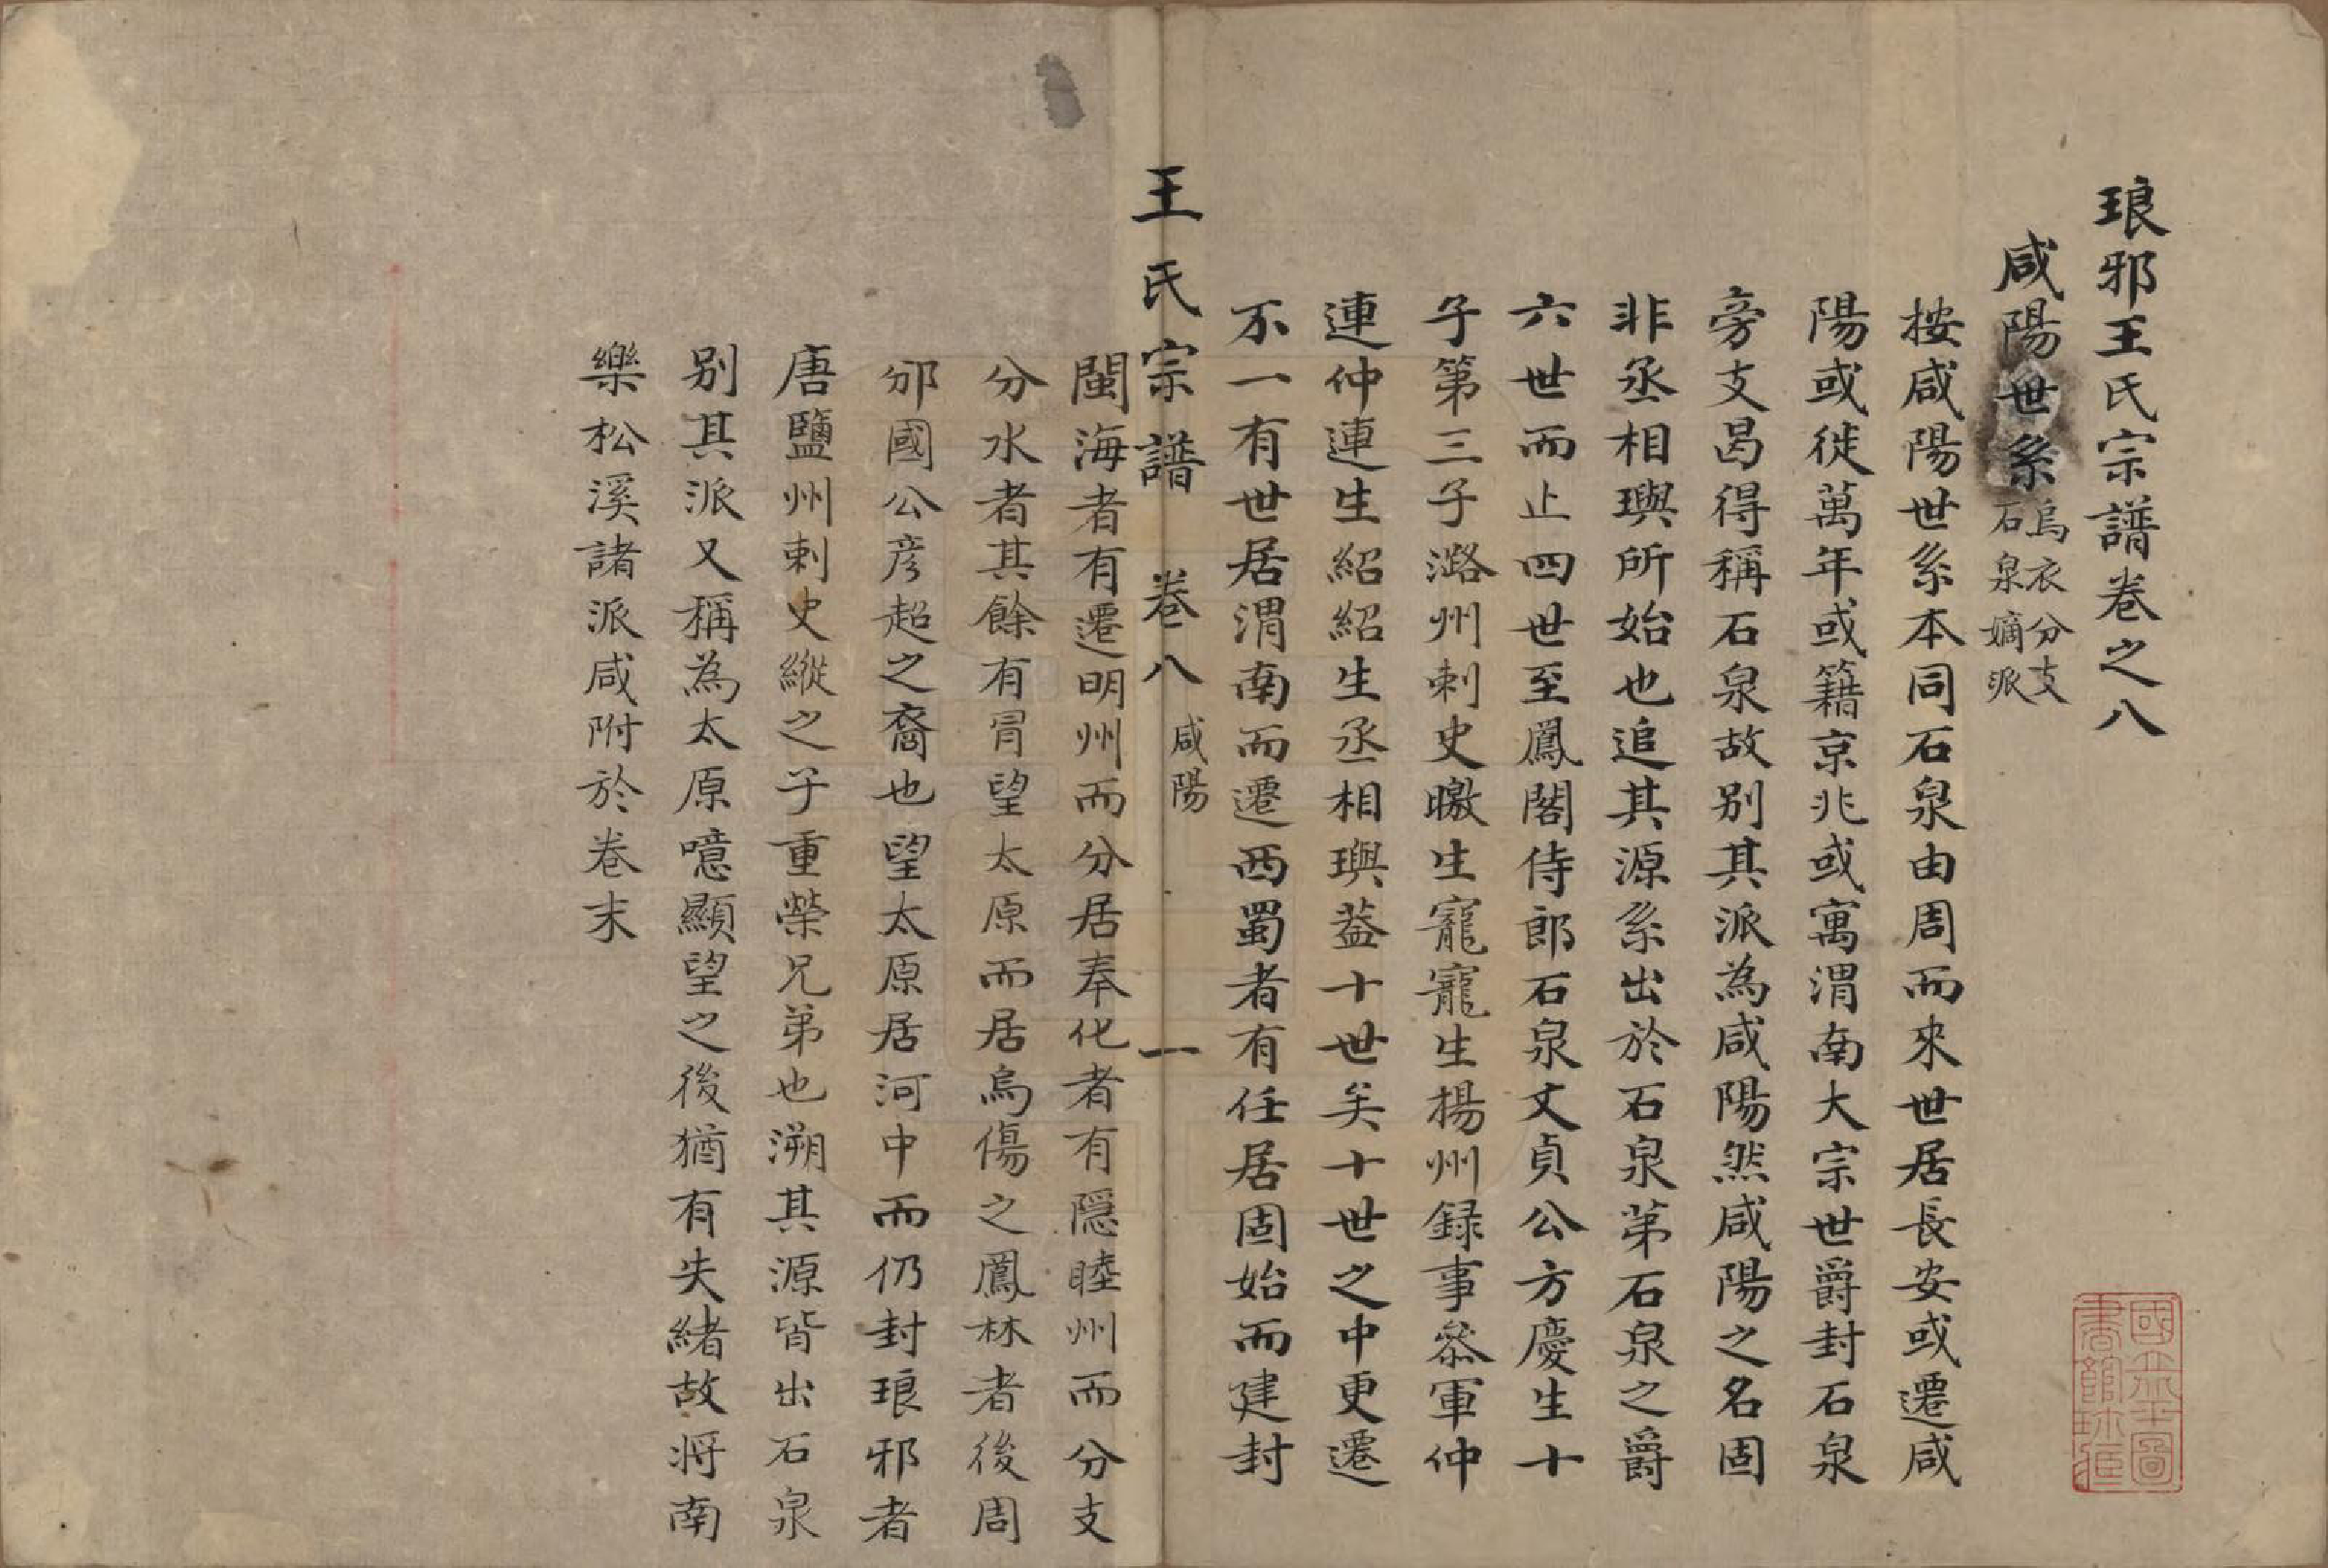 琅邪王氏宗譜卷之八
咸陽世系
烏衣分支
石泉嫡派
按咸陽世系本同石泉由周而來世居長安或遷咸
陽或徙萬年或籍京兆或寓渭南大宗世爵封石泉
旁支曷得稱石泉故别其派為咸陽然咸陽之名固
非丞相璵所始也追其源系出於石泉苐石泉之爵
六世而止四世至鳳閣侍郎石泉文貞公方慶生十
子第三子潞州刺史曒生寵寵生楊州録事叅軍仲
連仲連生紹紹生丞相璵葢十世矣十世之中更遷
不一有世居渭南而遷西蜀者有任居固始而建封
王氏宗譜 卷八 咸陽 一
閩海者有遷明州而分居奉化者有隱睦州而分支
分水者其餘有冐望太原而居烏傷之鳳林者後周
邠國公彦超之裔也望太原居河中而仍封琅邪者
唐鹽州刺史縱之子重榮兄弟也溯其源皆出石泉
别其派又稱為太原噫顯望之後猶有失緒故将南
樂松溪諸派咸附於卷末
國立北平圖書館珍藏